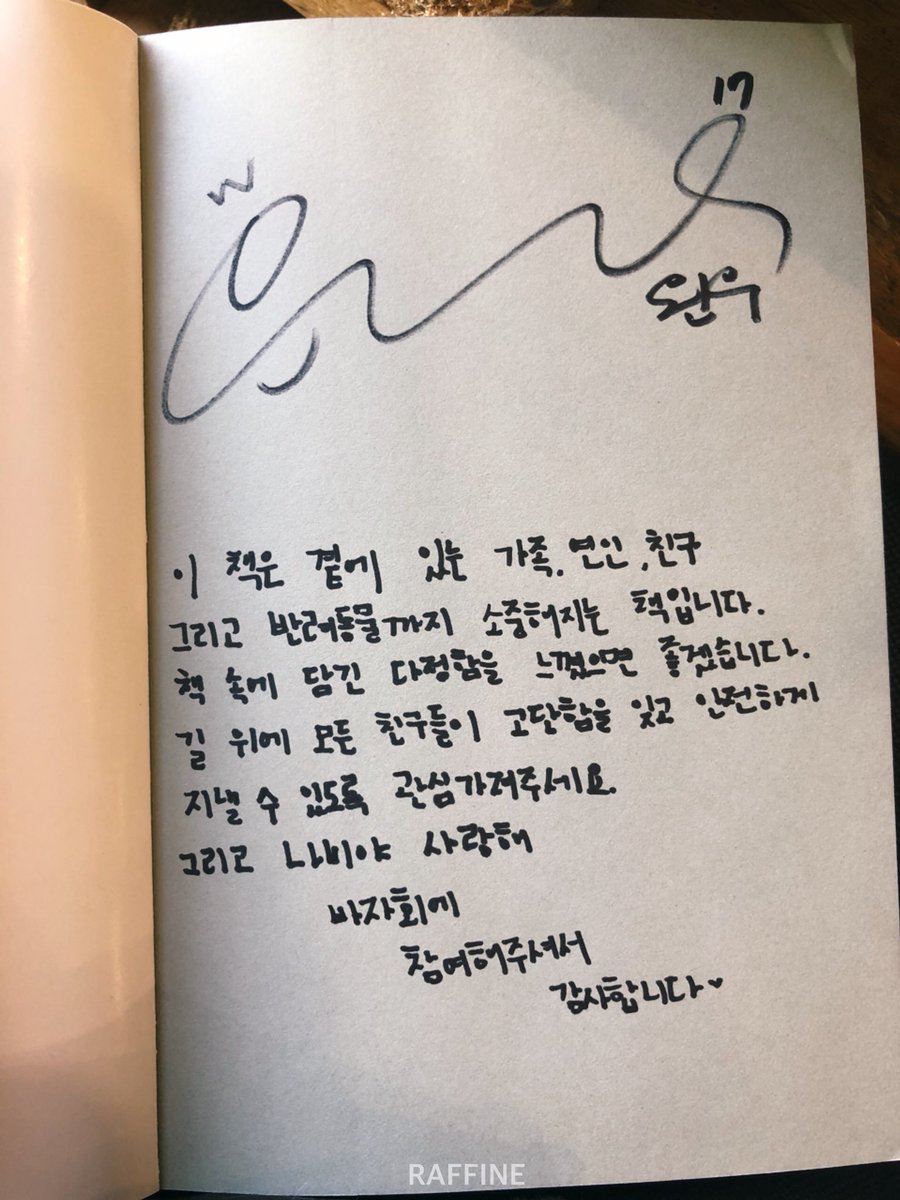 17
원우
이 책은 곁에 있는 가족, 연인, 친구
그리고 반려동물까지 소중해지는 책입니다.
책 속에 담긴 다정함을 느꼈으면 좋겠습니다.
길 위에 모든 친구들이 고단함을 잊고 안전하게
지낼 수 있도록 관심가져주세요.
그리고 나비야 사랑해
바자회에
참여해주셔서
감사합니다♥
RAFFINE